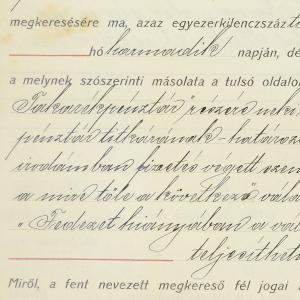 megkeresésére ma, azaz egyezerkilenczszáz
hó harmadik napján, dé
a melynek szószerinti másolata a tulsó oldalo
Takarékpénztár részére neki
pénztár titkárának - határoz
irodámban fizetés végett szem
a mire tőle a következő vála
„Fedezet hiányában a vá
teljesíthet
Miről, a fent nevezett megkereső fél jogai